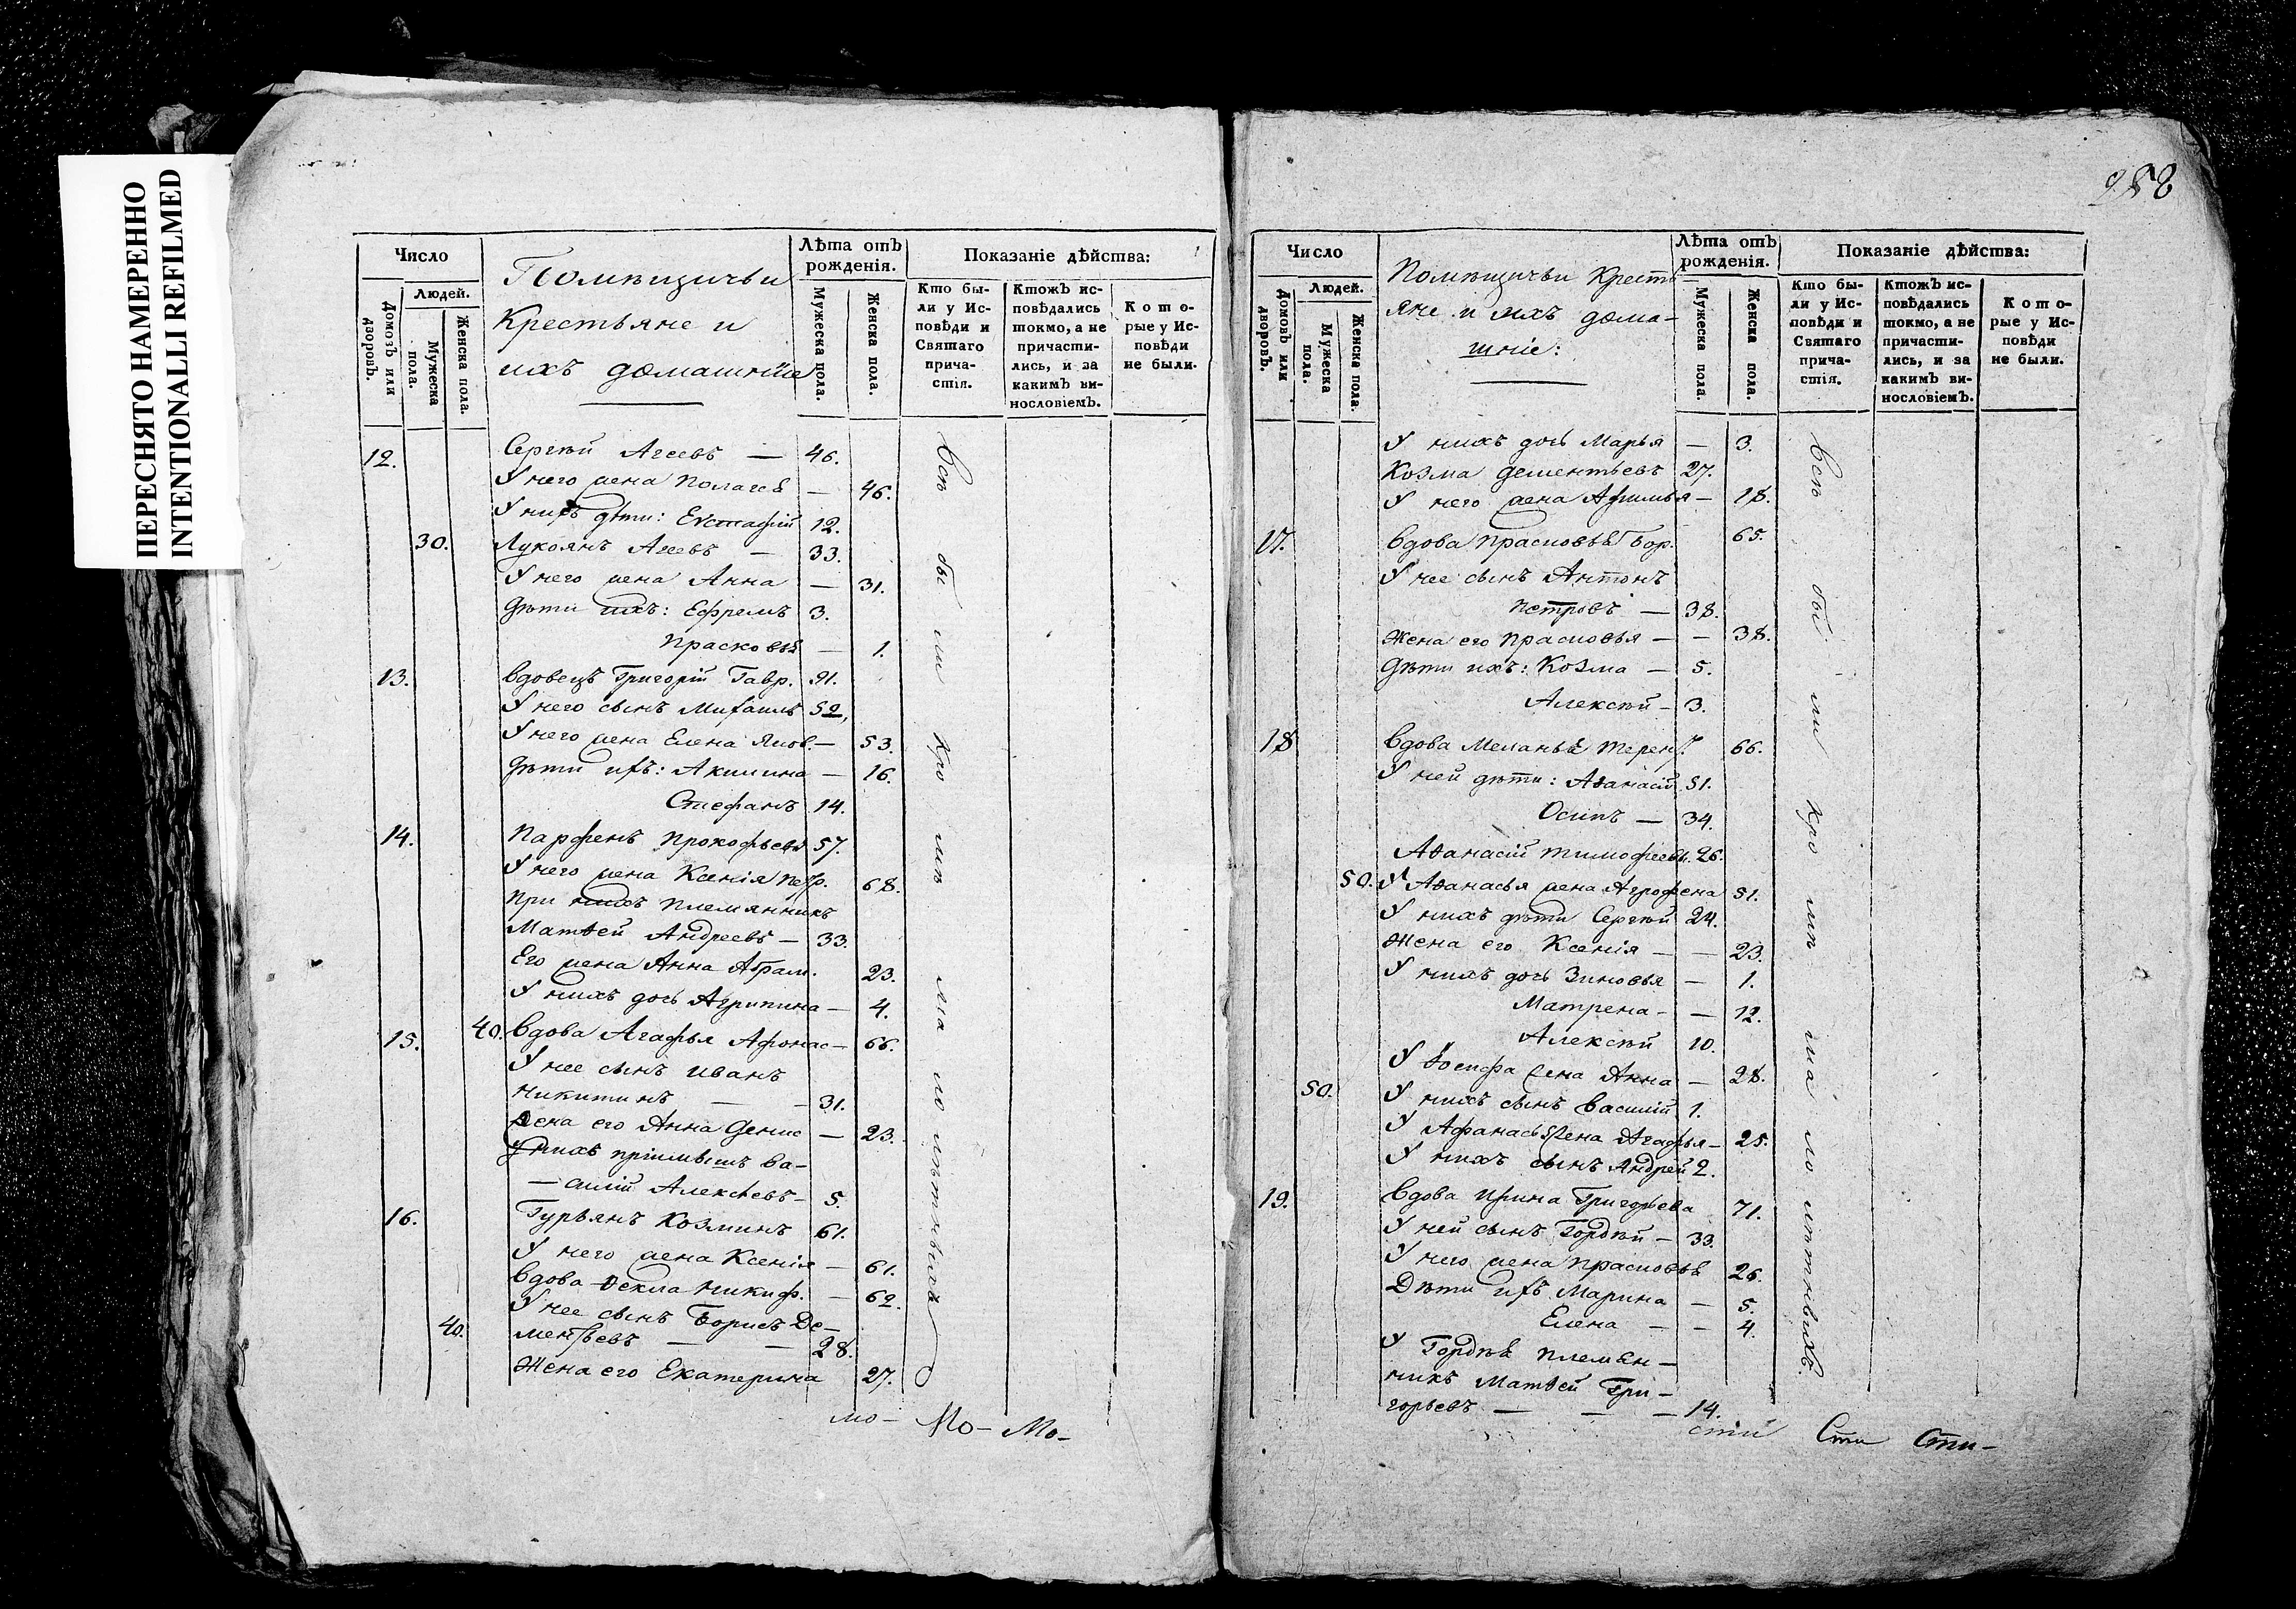 ПЕРЕСНЯТО НАМЕРЕННО
INTENTIONALLI REFILMED
Число
Людей.
Домовъ или дворовъ.
Мужеска пола.
Женска пола.
Помѣщичьи
Крестьяне и
ихъ домашнїе
Лѣта отъ рожденія.
Мужеска пола.
Женска пола.
Показаніе дѣйства:
Кто были у Исповѣди и Святаго причастія.
Ктожъ исповѣдались токмо, а не причастились, и за какимъ винословіемъ.
Которые у Исповѣди не были.
12. Сергѣй Агеевъ — 46.
У него жена Полагея — 46.
У нихъ дѣти: Еустафій 12.
30. Лукоянъ Агеевъ — 33.
У него жена Анна — 31.
Дѣти ихъ: Ефремъ 3.
Прасковья — 1.
13. Вдовецъ Григорій Гавр. 91.
У него сынъ Михаилъ 52,
У него жена Елена Яков. — 53.
Дѣти ихъ: Акилина — 16.
Стефанъ 14.
14. Парфенъ Прокофьевъ 57.
У него жена Ксенія Петр. 68.
При нихъ племянникъ
Матѳей Андреевъ — 33.
Его жена Анна Абрам. 23.
У нихъ дочь Агрипина — 4.
15. 40. Вдова Агафья Афонас — 66.
У нее сынъ Иванъ
Никитинъ — — 31.
Жена его Анна Денис — 23.
У нихъ пріимышъ Ва-
— силій Алексѣевъ — 5.
16. Гурьянъ Козминъ 61.
У него жена Ксенія — 61.
Вдова Ѳекла Никиф. — 62.
У нее сынъ Борисъ Де-
40. ментьевъ — — 28.
Жена его Екатерина 27.
Всѣ бы ли кро мѣ ма ло лѣтныхъ
мо- Мо- Мо-
258
Число
Людей.
Домовъ или дворовъ.
Мужеска пола.
Женска пола.
Помѣщичьи Кресть-
яне и ихъ дома-
шніе:
Лѣта отъ рожденія.
Мужеска пола.
Женска пола.
Показаніе дѣйства:
Кто были у Исповѣди и Святаго причастія.
Ктожъ исповѣдались токмо, а не причастились, и за какимъ винословіемъ.
Которые у Исповѣди не были.
У нихъ дочь Марья — 3.
Козма Дементьевъ 27.
У него жена Афимья — 18.
17. Вдова Прасковья Бор. 65.
У нее сынъ Антонъ
Петровъ — 38.
Жена его Прасковья — — 38.
Дѣти ихъ: Козма — 5.
Алексѣй — 3.
18 Вдова Меланья Терент. 66.
У ней дѣти: Аѳанасій 51.
Осипъ — 34.
Аѳанасій Тимофеевъ. 26.
50. У Аѳанасья жена Агрофена 51.
У нихъ дѣти Сергѣй 24.
Жена его Ксенія — — 23.
У нихъ дочь Зиновья — 1.
Матрена — — 12.
Алексѣй 10.
У Іосифа жена Анна — 28.
50. У нихъ сынъ Василій 1.
У Афанасья жена Агафья — 25.
У нихъ сынъ Андрей 2.
19. Вдова Ирина Григорьева 71.
У ней сынъ Гордѣй — 33.
У него жена Прасковья 26.
Дѣти ихъ Марина — 5.
Елена — — 4.
У Гордѣя племян-
никъ Матѳей Гри-
горьевъ — — — 14.
Всѣ бы ли кро мѣ ма ло лѣтныхъ.
стій Сти Сти-